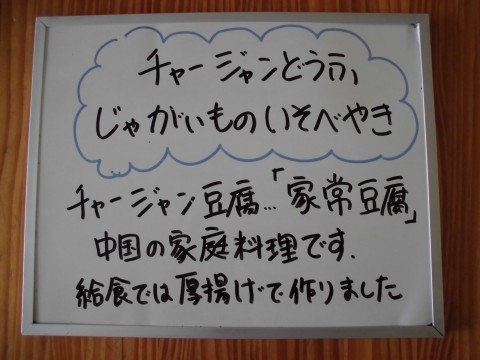 チャージャンどうふ、
じゃがいものいそべやき
チャージャン豆腐…「家常豆腐」
中国の家庭料理です.
給食では厚揚げで作りました